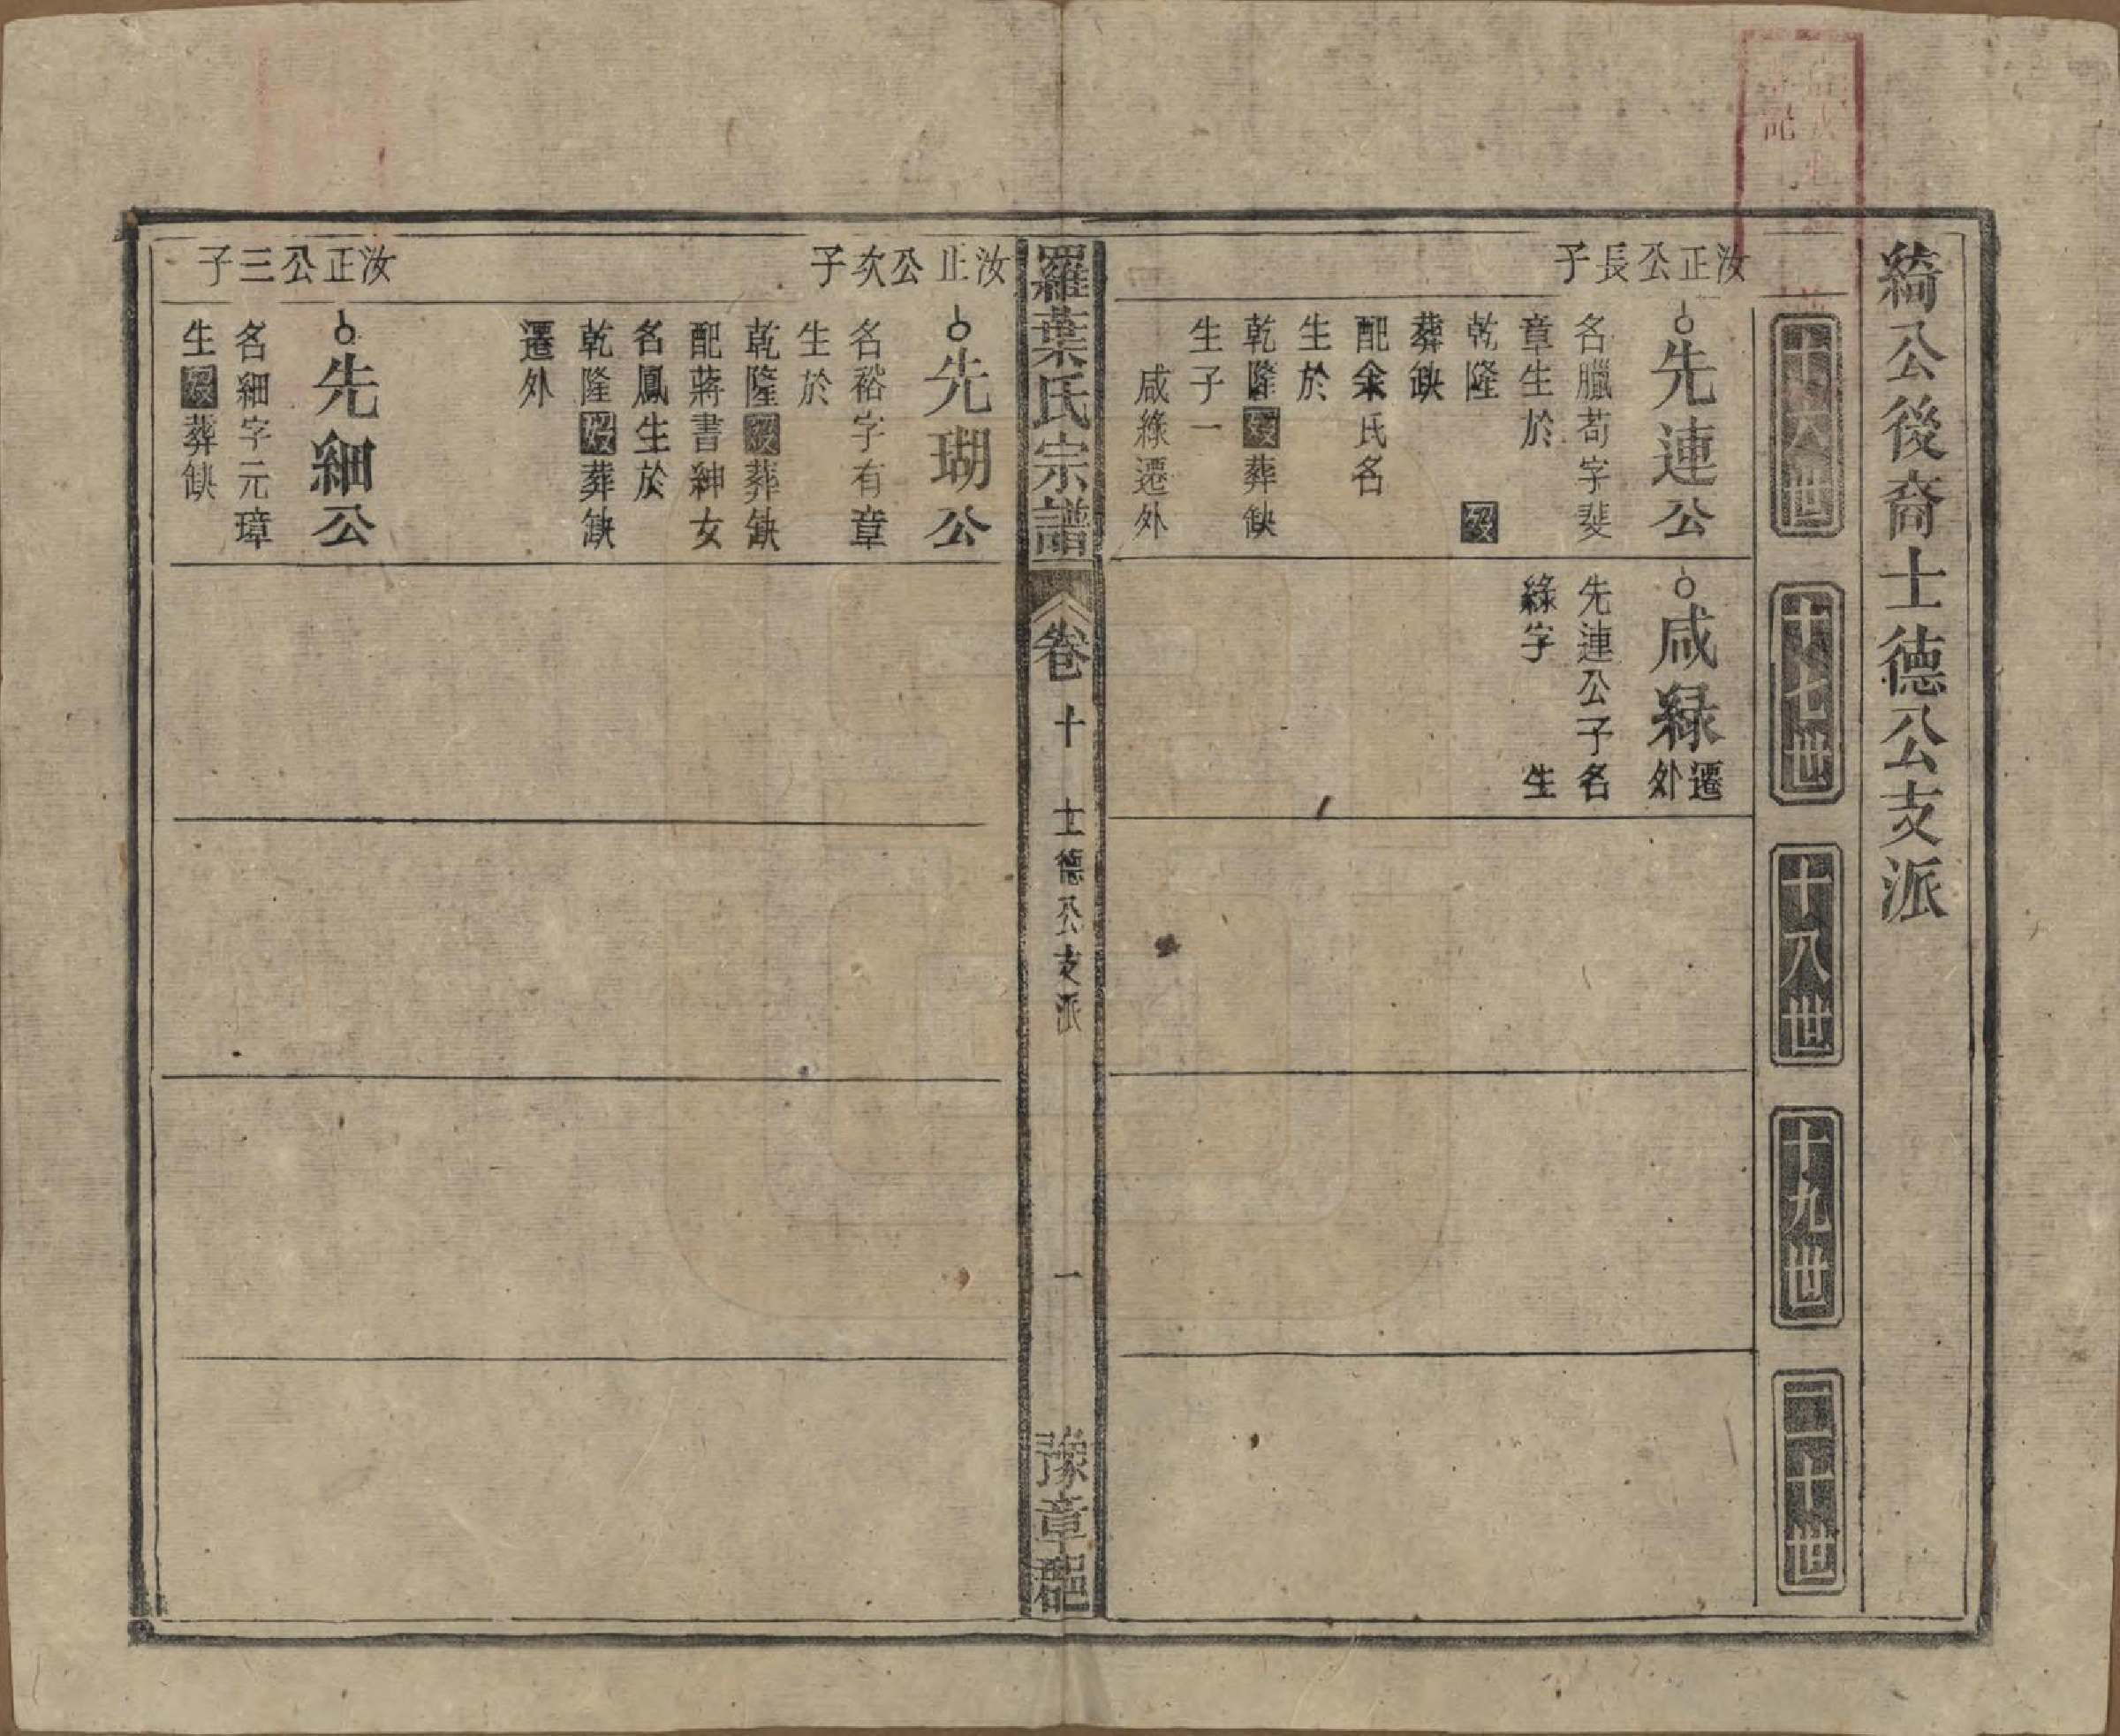 綺公後裔士德公支派
十六世
十七世
十八世
十九世
二十世
汝正公長子
先連公
名臘苟字斐
章生於
乾隆 歿
葬缺
配余氏名
生於
乾隆歿葬缺
生子一
咸綠遷外
咸綠遷外
先連公子名
綠字 生
羅葉氏宗譜
卷十
士德公支派
一
豫章郡
汝正公次子
先瑚公
名裕字有章
生於
乾隆歿葬缺
配蔣書紳女
名鳳生於
乾隆歿葬缺
遷外
汝正公三子
先細公
名細字元璋
生歿葬缺